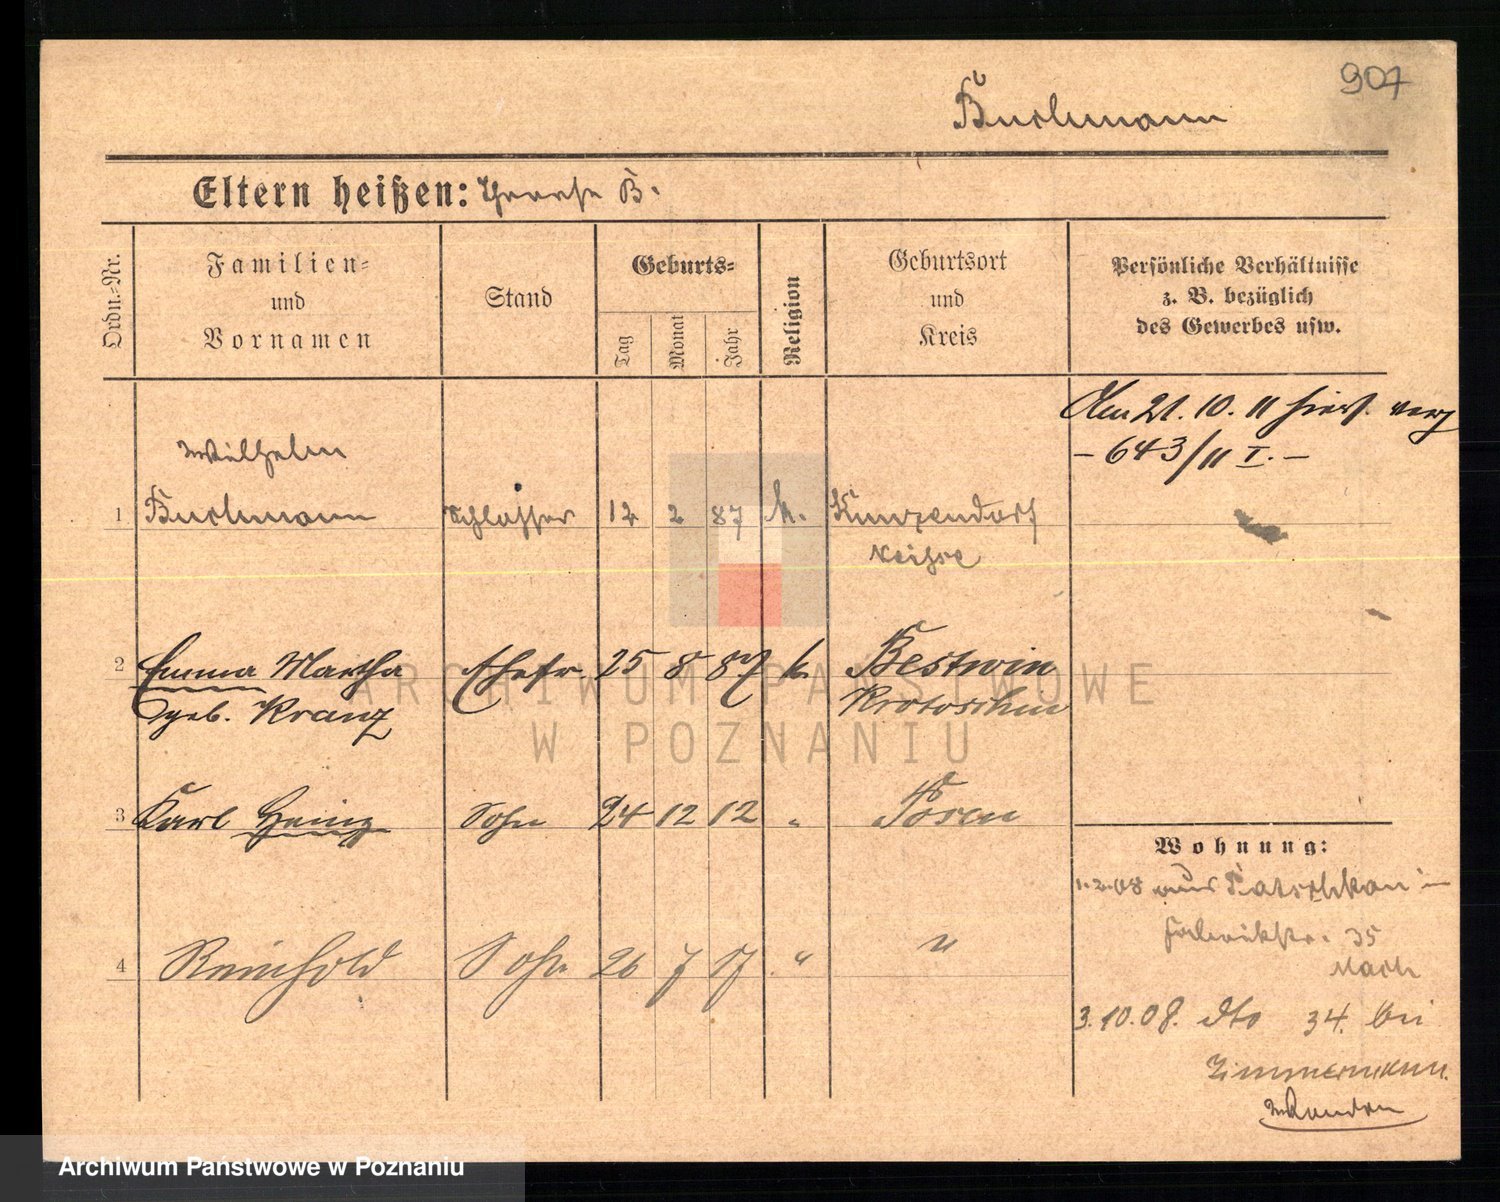 907
Buchmann
Eltern heißen: B.
Ordn.-Nr.
Familien-
und
Vornamen
Stand
Geburts-
Tag
Monat
Jahr
Religion
Geburtsort
und
Kreis
Persönliche Verhältnisse
z. B. bezüglich
des Gewerbes usw.
Am 21. 10. 11 hies. verz
- 643/11 I. -
Wilhelm
1 Buchmann Schlosser 12 2 87 k. Kunzendorf
Neisse
2 Emma Martha Ehefr. 25 8 87 k. Bestwin
geb. Kranz Krotoschin
3 Karl Heinz Sohn 24 12 12 " Posen
Wohnung:
1.2.08 aus Patschkau
Fabrikstr. 35
Nach
4 Reinhold Sohn 26 7 17 " "
3.10.08. dto 34. bei
Zimmermann.
ARCHIWUM PAŃSTWOWE
W POZNANIU
Archiwum Państwowe w Poznaniu